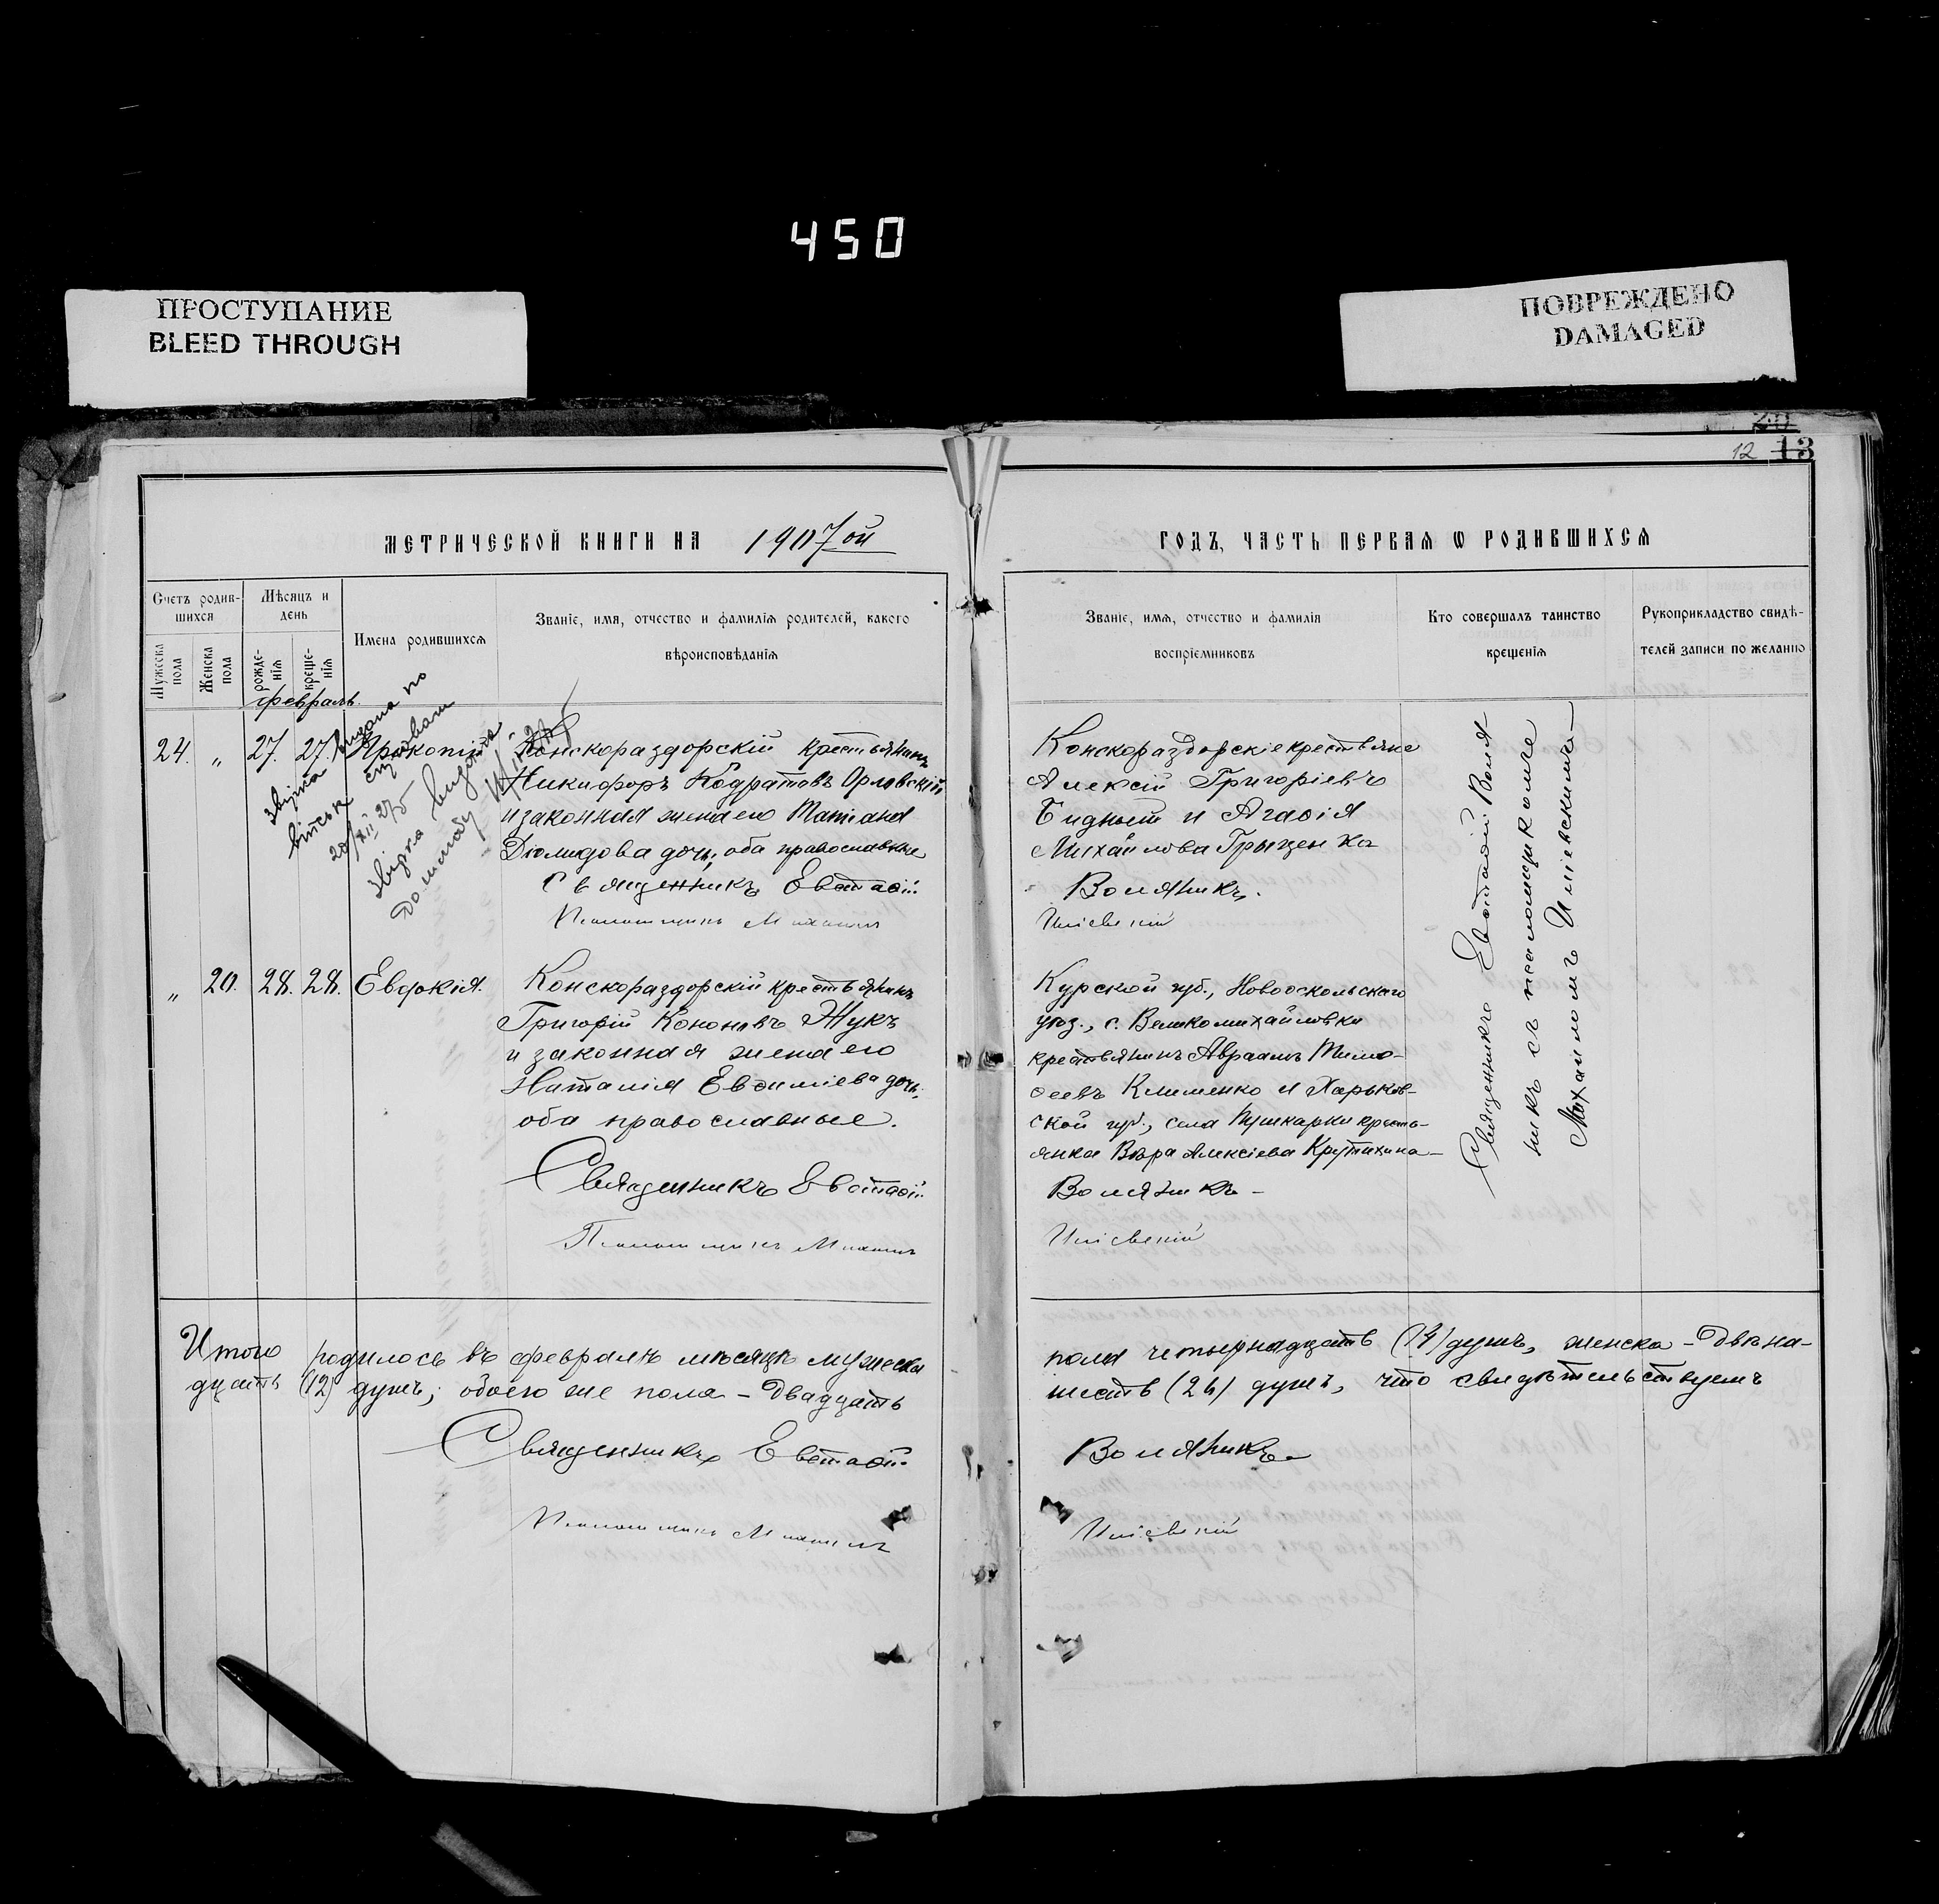 450
ПРОСТУПАНИЕ
BLEED THROUGH
ПОВРЕЖДЕНО
DAMAGED
12 13
МЕТРИЧЕСКОЙ КНИГИ НА 1907 ой
ГОДЪ, ЧАСТЬ ПЕРВАЯ Ѡ РОДИВШИХСЯ
Счетъ родив-
шихся
Мужеска пола
Женска пола
Мѣсяцъ и
день
рожде-
нія
креще-
нія
Имена родившихся
Званіе, имя, отчество и фамилія родителей, какого
вѣроисповѣданія
Званіе, имя, отчество и фамилія
воспріемниковъ
Кто совершалъ таинство
крещенія
Рукоприкладство свидѣ-
телей записи по желанію
февраль.
24. „ 27. 27. Прокопій
Конскораздорскій крестьянинъ
Никифоръ Кодратовъ Орловскій
и законная жена его Татіана
Діомидова дочь, оба православные
Священникъ Евстаѳій
Псаломщикъ Михаилъ
Конскораздорскіе крестьяне
Алексій Григоріевъ
Бидный и Агаѳія
Михайлова Грыценко
Воляникъ.
Иліевскій
Священникъ Евстаѳій Воля
никъ съ псаломщикомъ
Михаиломъ Иліевскимъ
„ 20. 28. 28. Евдокія.
Конскораздорскій крестьянинъ
Григорій Кононовъ Жукъ
и законная жена его
Наталія Евѳиміева дочь,
оба православные.
Священникъ Евстаѳій
Псаломщикъ Михаилъ
Курской губ., Новооскольскаго
уѣз., с. Великомихайловки
крестьянинъ Авраамъ Тимо-
ѳеевъ Клименко и Харьков-
ской губ., села Пушкарки кресть-
янка Вѣра Алексіева Крутихина
Воляникъ
Иліевскій
Итого родилось въ февралѣ мѣсяцѣ мужеска
пола четырнадцать (14) душъ, женска – двѣна-
дцать (12) душъ; обоего же пола – двадцать
шесть (26) душъ, что свидѣтельствуемъ
Священникъ Евстаѳій
Воляникъ
Псаломщикъ Михаилъ
Иліевскій